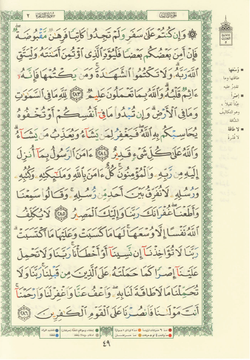 ۞ وَإِن كُنتُمْ عَلَىٰ سَفَرٍ وَلَمْ تَجِدُوا۟ كَاتِبًا فَرِهَـٰنٌ مَّقْبُوضَةٌ ۖ
فَإِنْ أَمِنَ بَعْضُكُم بَعْضًا فَلْيُؤَدِّ ٱلَّذِى ٱؤْتُمِنَ أَمَـٰنَتَهُۥ وَلْيَتَّقِ
ٱللَّهَ رَبَّهُۥ ۗ وَلَا تَكْتُمُوا۟ ٱلشَّهَـٰدَةَ ۚ وَمَن يَكْتُمْهَا فَإِنَّهُۥٓ
ءَاثِمٌ قَلْبُهُۥ ۗ وَٱللَّهُ بِمَا تَعْمَلُونَ عَلِيمٌ ٢٨٣ لِّلَّهِ مَا فِى ٱلسَّمَـٰوَٰتِ
وَمَا فِى ٱلْأَرْضِ ۗ وَإِن تُبْدُوا۟ مَا فِىٓ أَنفُسِكُمْ أَوْ تُخْفُوهُ
يُحَاسِبْكُم بِهِ ٱللَّهُ ۖ فَيَغْفِرُ لِمَن يَشَآءُ وَيُعَذِّبُ مَن يَشَآءُ ۗ
وَٱللَّهُ عَلَىٰ كُلِّ شَىْءٍ قَدِيرٌ ٢٨٤ ءَامَنَ ٱلرَّسُولُ بِمَآ أُنزِلَ
إِلَيْهِ مِن رَّبِّهِۦ وَٱلْمُؤْمِنُونَ ۚ كُلٌّ ءَامَنَ بِٱللَّهِ وَمَلَـٰٓئِكَتِهِۦ وَكُتُبِهِۦ
وَرُسُلِهِۦ لَا نُفَرِّقُ بَيْنَ أَحَدٍ مِّن رُّسُلِهِۦ ۚ وَقَالُوا۟ سَمِعْنَا
وَأَطَعْنَا ۖ غُفْرَانَكَ رَبَّنَا وَإِلَيْكَ ٱلْمَصِيرُ ٢٨٥ لَا يُكَلِّفُ
ٱللَّهُ نَفْسًا إِلَّا وُسْعَهَا ۚ لَهَا مَا كَسَبَتْ وَعَلَيْهَا مَا ٱكْتَسَبَتْ ۗ
رَبَّنَا لَا تُؤَاخِذْنَآ إِن نَّسِينَآ أَوْ أَخْطَأْنَا ۚ رَبَّنَا وَلَا تَحْمِلْ
عَلَيْنَآ إِصْرًا كَمَا حَمَلْتَهُۥ عَلَى ٱلَّذِينَ مِن قَبْلِنَا ۚ رَبَّنَا وَلَا
تُحَمِّلْنَا مَا لَا طَاقَةَ لَنَا بِهِۦ ۖ وَٱعْفُ عَنَّا وَٱغْفِرْ لَنَا وَٱرْحَمْنَآ ۚ
أَنتَ مَوْلَىٰنَا فَٱنصُرْنَا عَلَى ٱلْقَوْمِ ٱلْكَـٰفِرِينَ ٢٨٦
٤٩